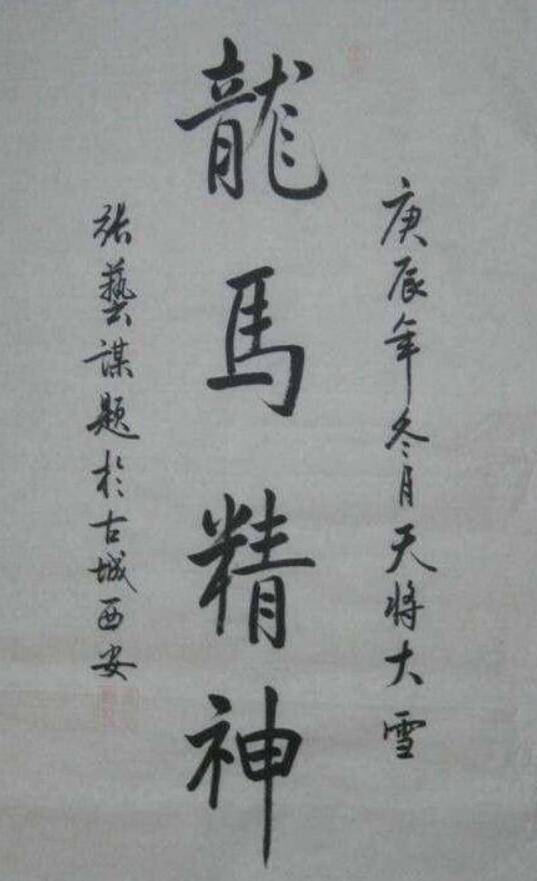 庚辰年冬月天将大雪
龍馬精神
张藝謀题於古城西安